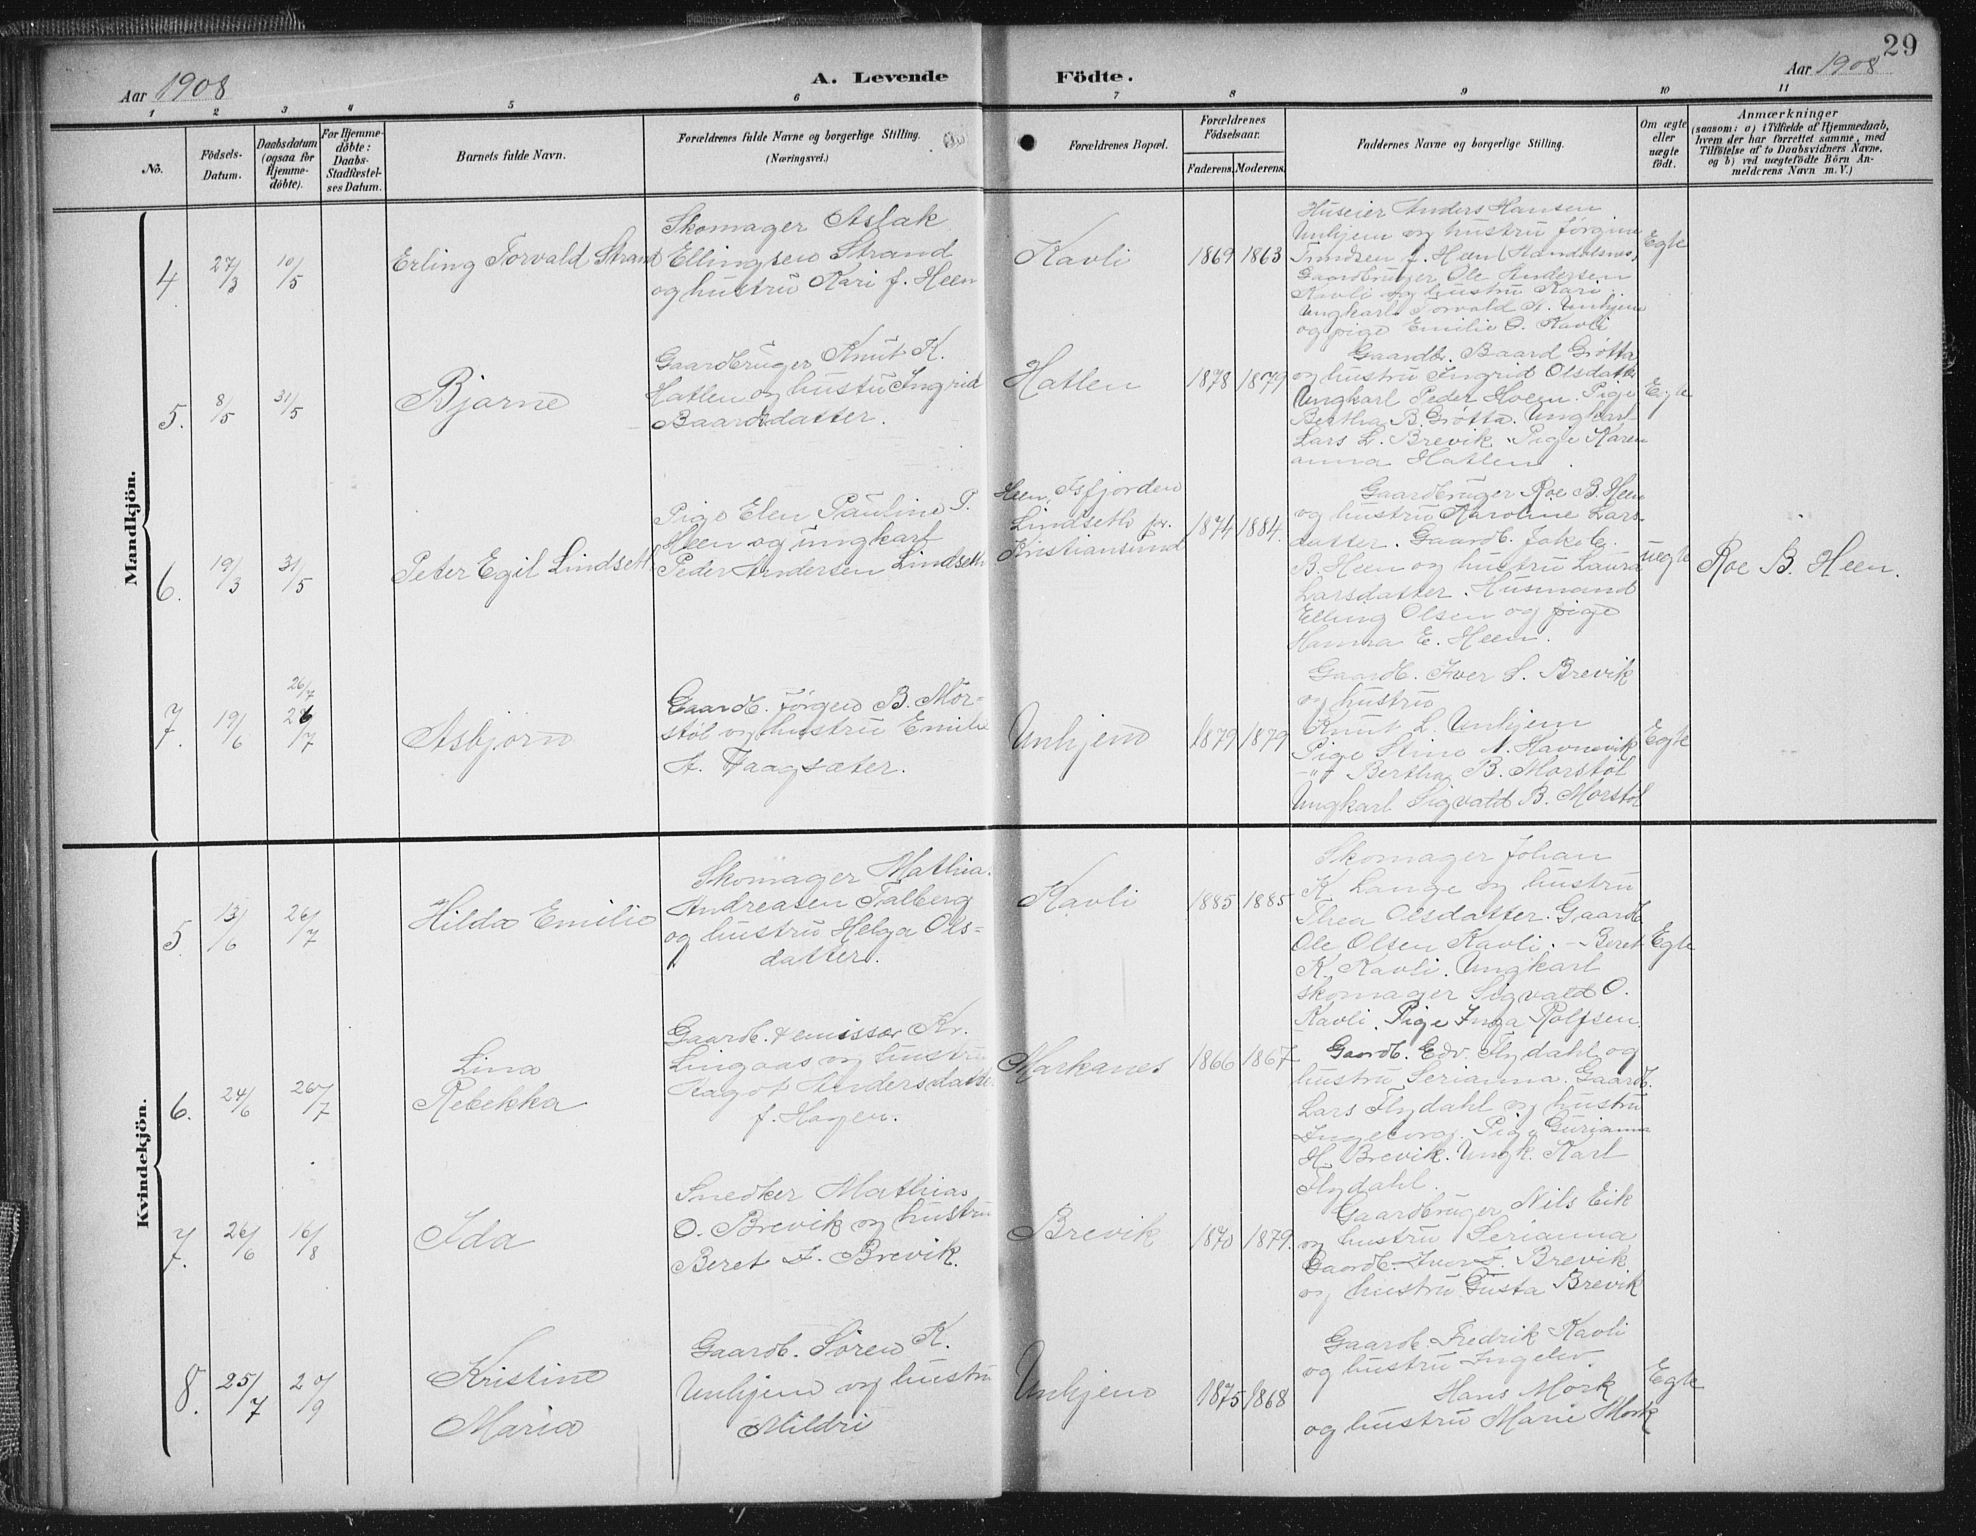 29
Aar 1908
A. Levende Födte.
Aar 1908
1 2 3 4 5 6 7 8 9 10 11
No.
Födsels-
Datum.
Daabsdatum
(ogsaa for
Hjemme-
döbte).
For Hjemme-
döbte:
Daabs-
Stadfæstel-
ses Datum.
Barnets fulde Navn.
Forældrenes fulde Navne og borgerlige Stilling.
(Næringsvei.)
Forældrenes Bopæl.
Forældrenes
Födselsaar.
Faderens. Moderens.
Faddernes Navne og borgerlige Stilling.
Om ægte
eller
uægte
födt.
Anmærkninger
(saasom: a) i Tilfælde af Hjemmedaab,
hvem der har forrettet samme, med
Tilföielse af to Daabsvidners Navne,
og b) ved uægtefödte Börn An-
melderens Navn m. V.)
Mandkjön.
4
27/3
10/5
Erling Torvald Strand
Skomager Aslak
Ellingsen Strand
og hustru Kari f. Heen
Kavli
1869
1863
Huseier Anders Hansen
Unhjem og hustru Jørgine
f. Heen (Aandalsnes)
Gaardbruger Ole Andersen
Kavli og hustru Kari.
Ungkarl Torvald A. Unhjem
og pige Emilie O. Kavli
Egte
5.
8/5
31/5
Bjarne
Gaardbruger Knut K.
Hatlen og hustru Ingrid
Baardsdatter.
Hatlen
1878
1879
Gaardb. Baard Grøtta
og hustru Ingrid Olsdatter
Ungkarl Peder Hoem. Pige
Bertha B. Grøtta. Ungkarl
Lars L. Brevik. Pige Karen
anna Hatlen.
Egte
6.
19/3
31/5
Peter Egil Lindseth
Pige Elen Pauline P.
Heen og ungkarl
Peder Andersen Lindseth
Heen, Isfjorden
Lindseth pr.
Kristiansund
1874
1884.
Gaardbruger Roe B. Heen
og hustru Karoline Lars-
datter. Gaardb. Jakob
B. Heen og hustru Laura
Larsdatter. Husmand
Elling Olsen og pige
Hanna E. Heen.
uegte
Roe B. Heen.
7.
19/6
26/7
26/7
Asbjørn
Gaardb. Jørgen B. Mor-
støl og hustru Emilie
A. Faagsæter.
Unhjem
1879
1879
Gaardb. Iver S. Brevik
og hustru
Knut L. Unhjem
Pige Stine A. Havnsvik
-"- Bertha B. Morstøl
Ungkarl Sigvald B. Morstøl
Egte
Kvindekjön.
5.
13/6
26/7
Hilda Emilie
Skomager Mathia.
Andreasen Talberg
og hustru Helga Ols-
datter.
Kavli
1885
1885
Skomager Johan
K. Lange og hustru
Thea Olsdatter. Gaardb.
Ole Olsen Kavli. - Beret
K. Kavli. Ungkarl
skomager Sigvald O.
Kavli. Pige Inga Rolfsen.
Egte
6.
24/6
26/7
Lina
Rebekka
Gaardb. & emissær Kr.
Lingaas og hustru
Aagot Andersdatter
f. Hagen.
Markanes
1866
1867
Gaardb. Edv. Flydahl og
hustru Serianna. Gaardb.
Lars Flydahl og hustru
Ingeborg. Pige Gurianna
H. Brevik. Ungk. Karl
Flydahl.
7.
26/6
16/8
Ida
Snedker Mathias
O. Brevik og hustru
Beret I. Brevik.
Brevik
1870
1879.
Gaardbruger Nils Eik
og hustru Serianna
Gaardb. Iver I. Brevik
og hustru Gusta Brevik
8.
25/7
20/9
Kristine
Maria
Gaardb. Søren K.
Unhjem og hustru
Mildri
Unhjem
1875
1868
Gaardb. Fredrik Kavli
og hustru Ingelev.
Hans Mork
og hustru Marie Mork
Egte